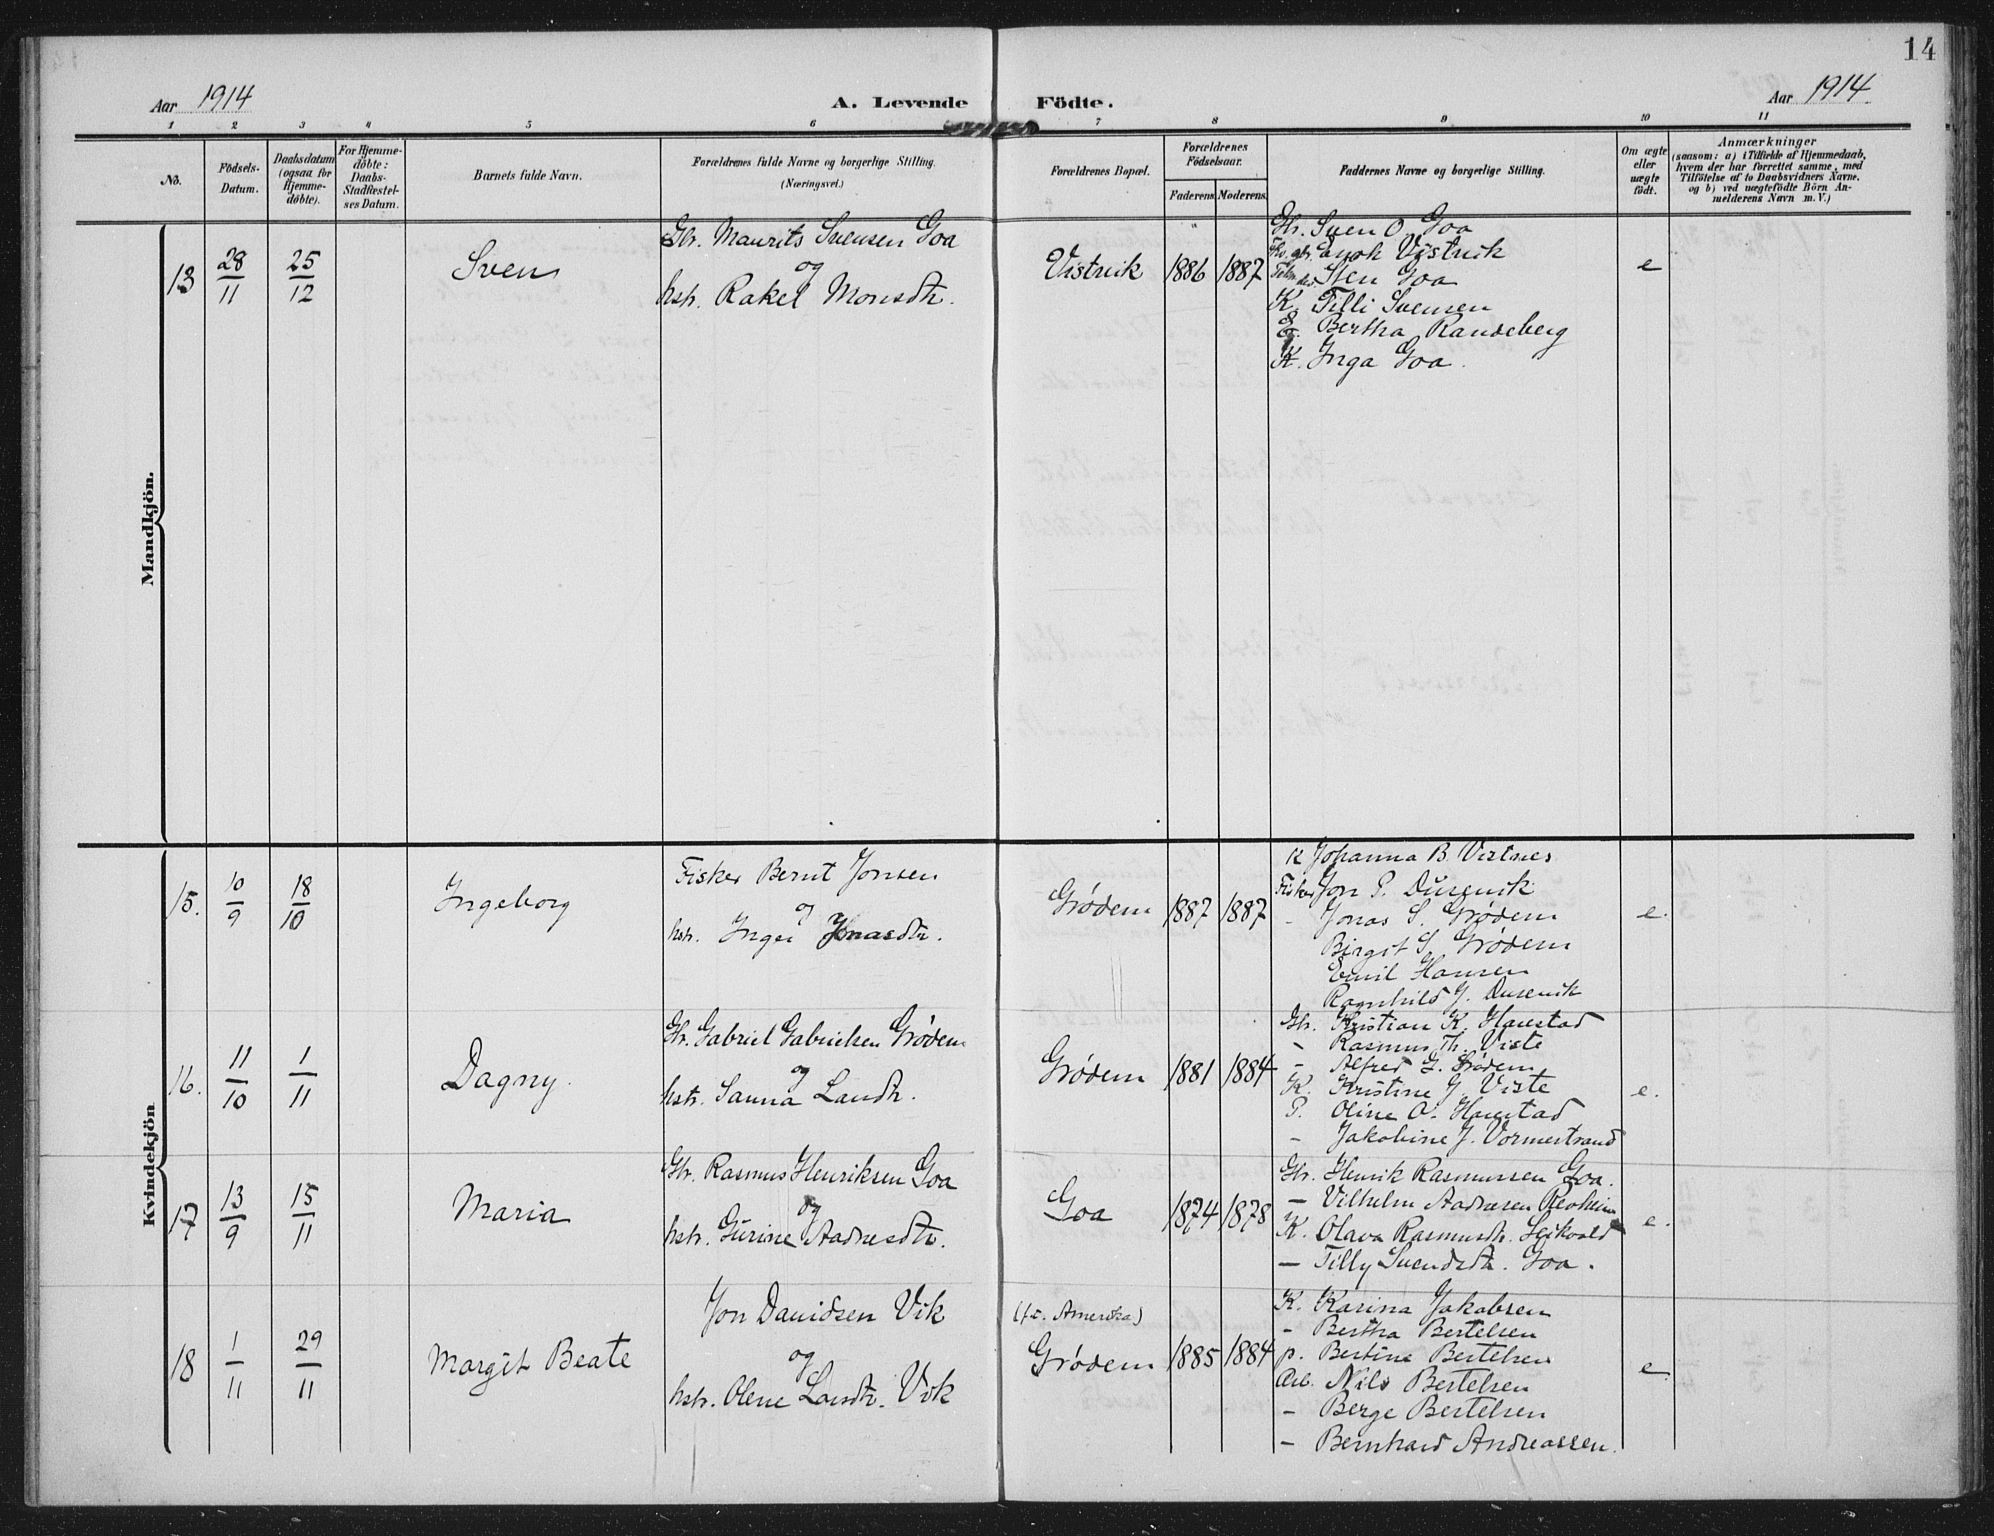 14
Aar 1914
A. Levende Födte.
Aar 1914
1 2 3 4 5 6 7 8 9 10 11
No.
Födsels-Datum.
Daabsdatum (ogsaa for Hjemme-döbte).
For Hjemme-döbte: Daabs-Stadfæstel-ses Datum.
Barnets fulde Navn.
Forældrenes fulde Navne og borgerlige Stilling.
(Næringsvei.)
Forældrenes Bopæl.
Forældrenes Födselsaar.
Faderens
Moderens
Faddernes Navne og borgerlige Stilling.
Om ægte eller uægte födt.
Anmærkninger
(saasom: a) i Tilfælde af Hjemmedaab,
hvem der har forrettet samme, med
Tilföielse af to Daabsvidners Navne,
og b) ved uægtefödte Börn An-
melderens Navn m. V.)
Mandkjön.
13
28/11
25/12
Sven
Gbr. Maurits Svensen Goa
og
hstr. Rakel Monsdtr.
Vistvik
1886
1887
Gbr. Sven O. Goa
Enok Vistvik
Sten Goa
K. Tilli Svensen
E. Bertha Randeberg
K. Inga Goa.
e
Kvindekjön
15.
10/9
18/10
Ingeborg
Fisker Bernt Jonsen
og
hstr. Inger Jonasdtr.
Grødem
1887
1887
K Johanna B. Vistnes
Fisker Jon P. Dusevik
- Jonas S. Grødem
Birgit S. Grødem
Emil Hansen
Ragnhild J. Dusevik
e.
16.
11/10
1/11
Dagny.
Gbr. Gabriel Gabrielsen Grødem
og
hstr. Sanna Larsdtr.
Grødem
1881
1884
Gbr. Kristian K. Harestad
- Rasmus Th. Viste
- Alfred G. Grødem
K. Kristine J. Viste
P. Oline O. Harestad
- Jakobine J. Vormestrand
e.
17
13/9
15/11
Maria
Gbr. Rasmus Henriksen Goa
og
hstr. Gurine Aadnesdtr.
Goa
1874
1878
Gbr. Henrik Rasmussen Goa.
- Vilhelm Aadnesen Revheim
K. Olava Rasmusdtr. Leikvold
- Tilly Svendsdtr. Goa.
e.
18
1/11
29/11
Margit Beate
Jon Davidsen Vik
og
hstr. Olene Larsdtr. Vik
(f.t. Amerika)
Grødem
1885
1884
K. Karina Jakobsen
- Bertha Bertelsen
p. Bertine Bertelsen
Arb. Nils Bertelsen
- Berge Bertelsen
- Bernhard Andreassen.
e